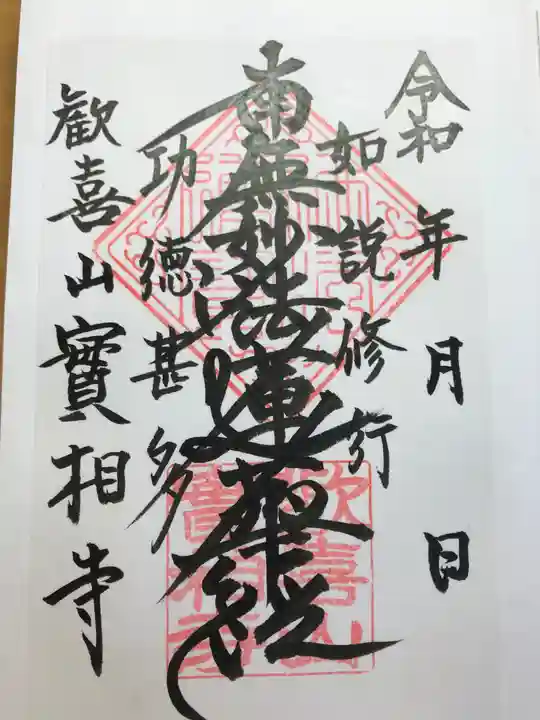 令和 年 月 日
如説修行
南無妙法蓮華経
功德甚多
歡喜山寶相寺
歓喜山
寶相寺